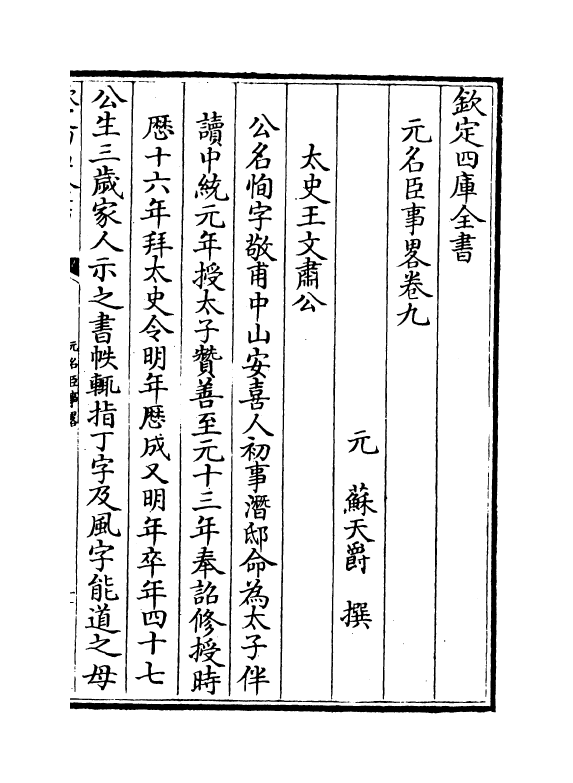 欽定四庫全書
元名臣事畧卷九
元　蘇天爵　撰
太史王文肅公
公名恂字敬甫中山安喜人初事潛邸命為太子伴
讀中統元年授太子贊善至元十三年奉詔修授時
歴十六年拜太史令明年歴成又明年卒年四十七
公生三歲家人示之書帙輒指丁字及風字能道之母
元名臣事畧